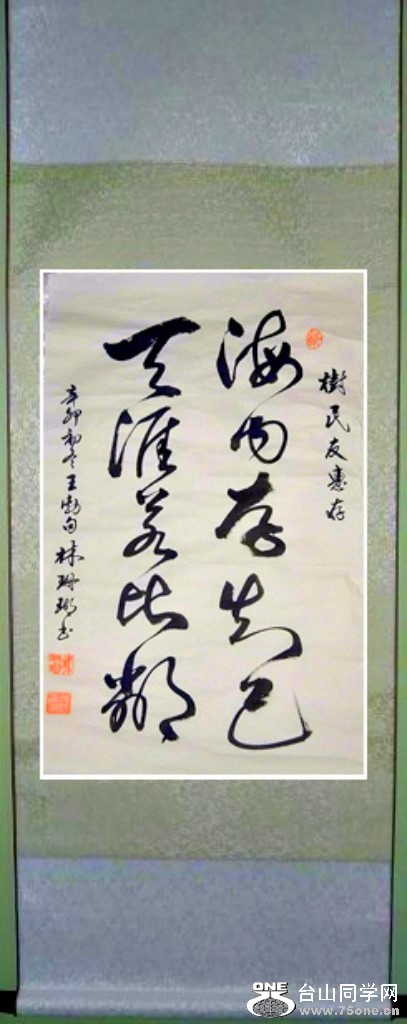 樹民友惠存
海内存知己
天涯若比鄰
辛卯初冬王勃句林珊瑚書
ONE
台山同学网
www.75one.cn